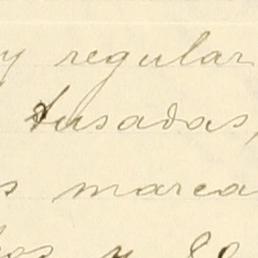 y regular
tusadas,
s marca
y se